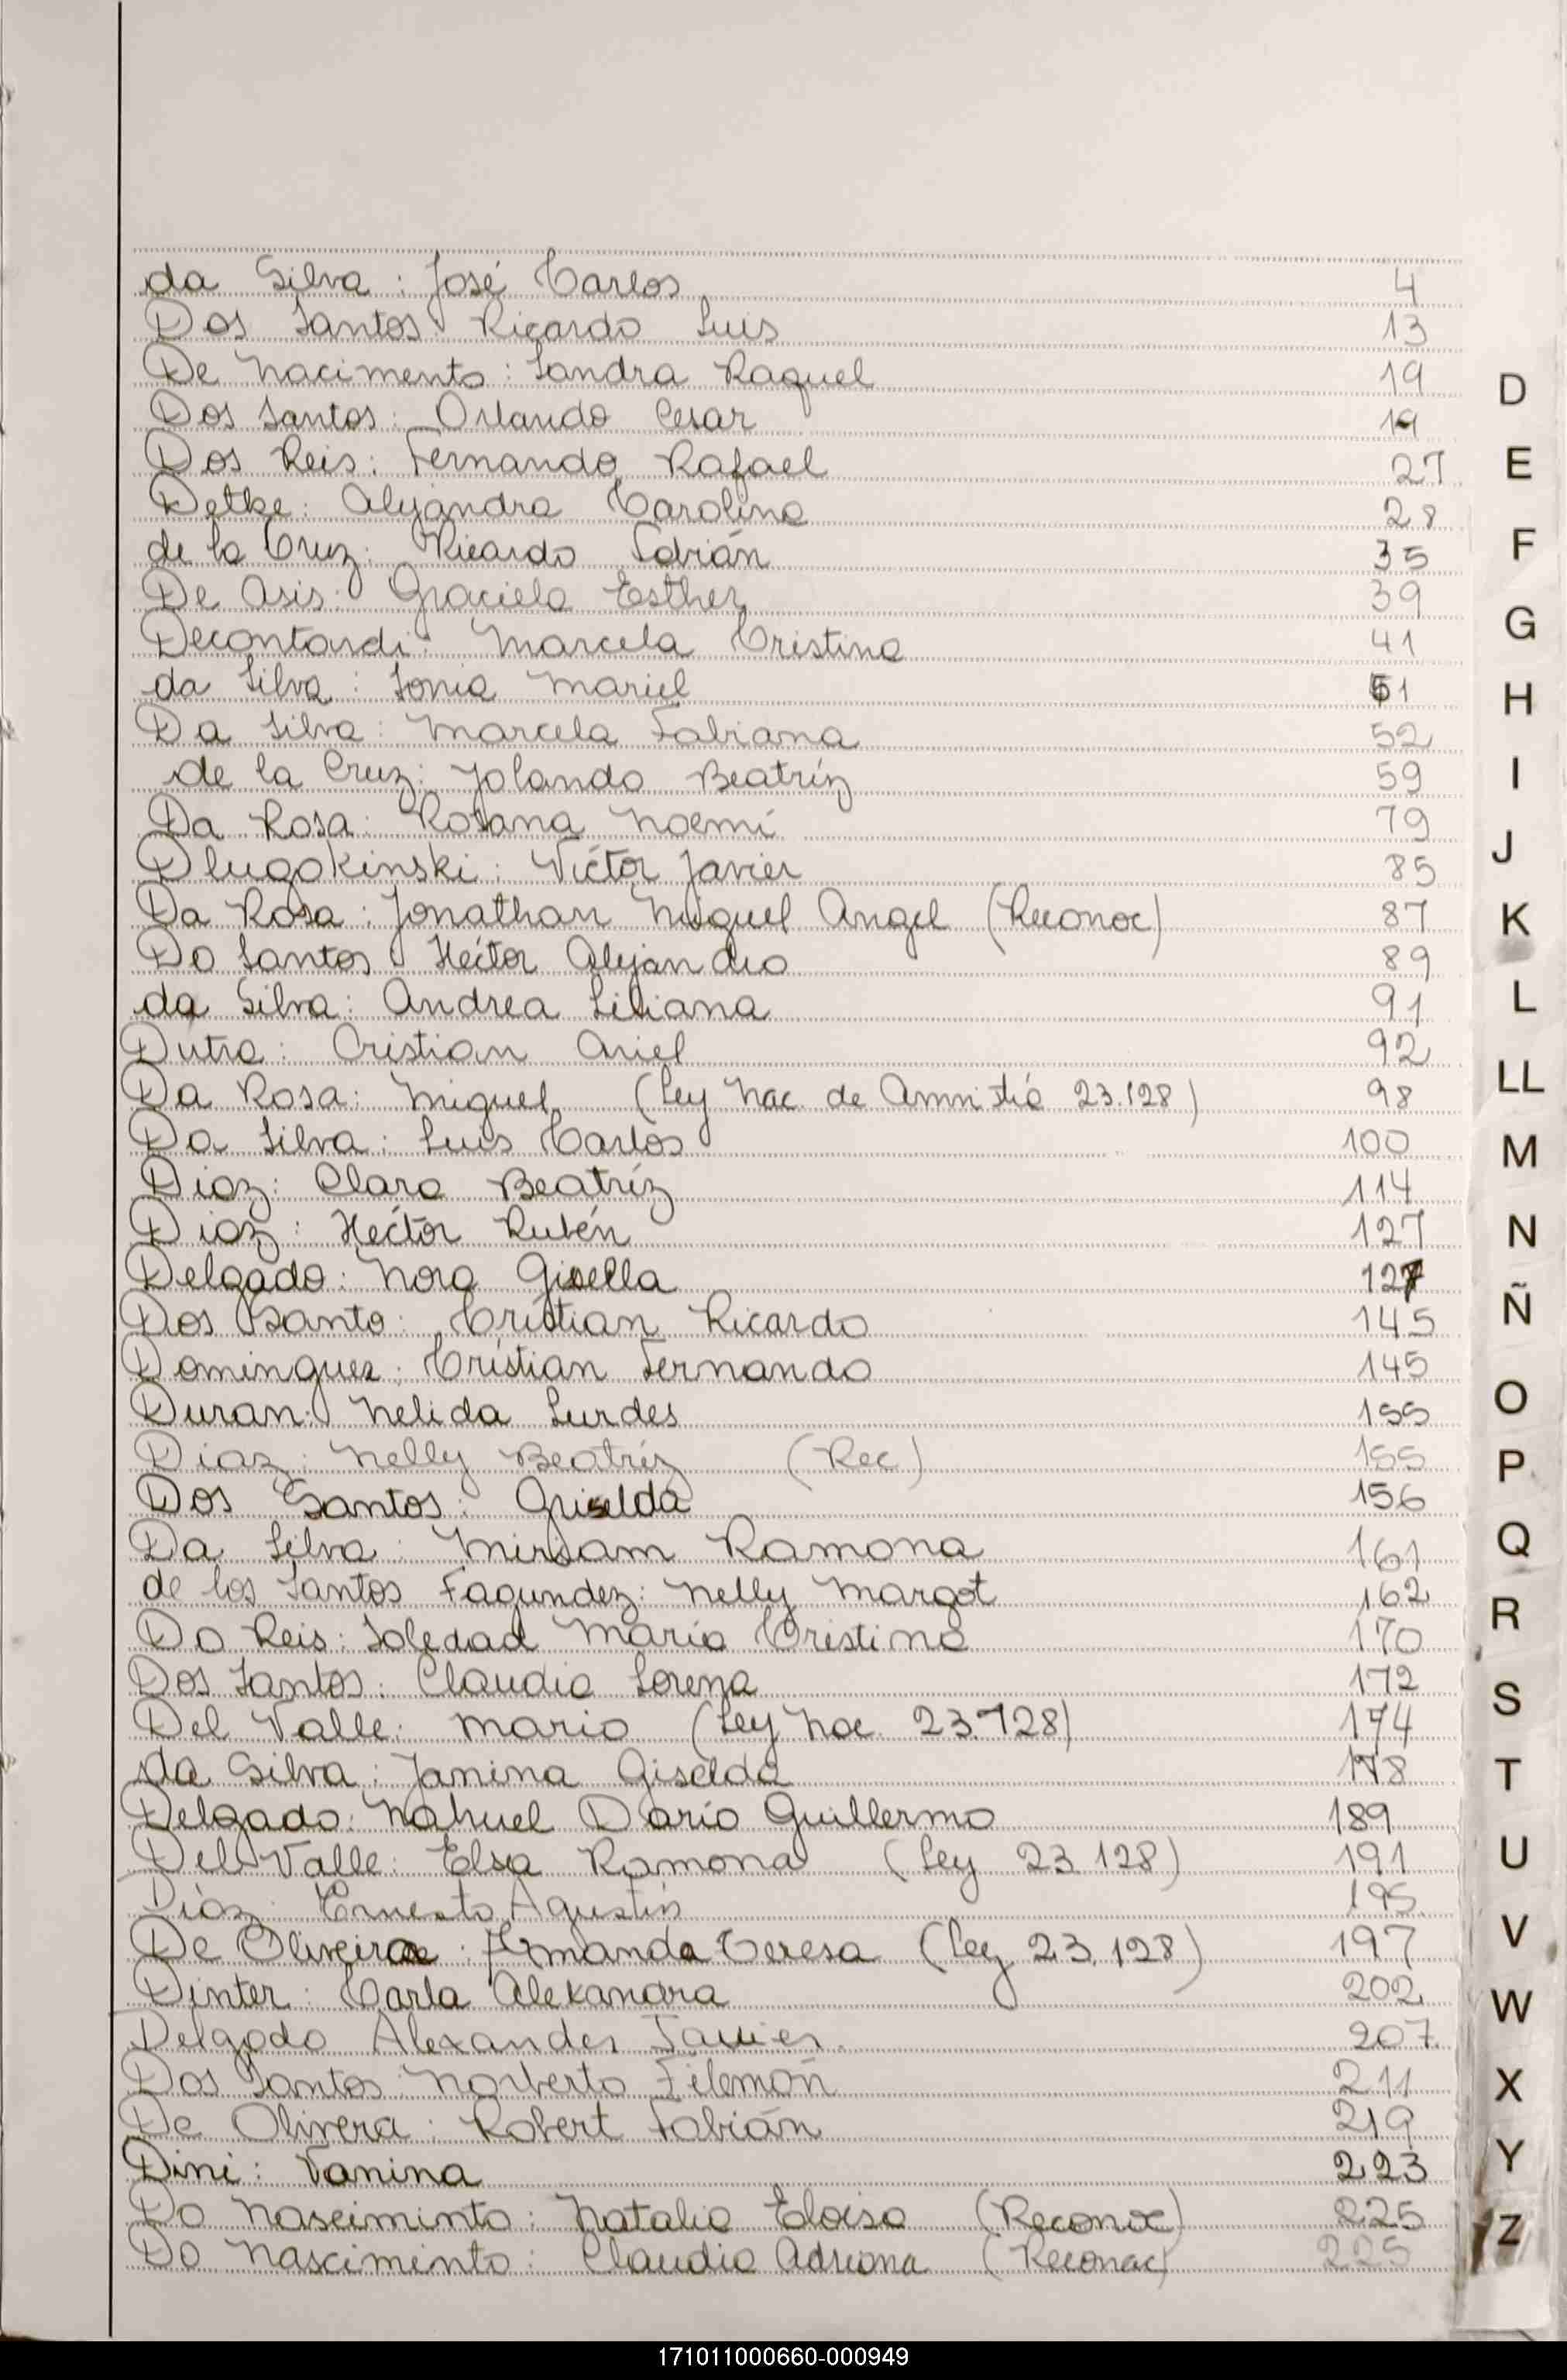 da Silva : José Carlos 4
Dos Santos Ricardo Luis 13
De Nacimento : Sandra Raquel 19
Dos Santos : Orlando Cesar 19
Dos Reis : Fernando Rafael 27
Detke : Alejandra Carolina 28
de la Cruz : Ricardo Fabián 35
De Asis : Graciela Esther 39
Decontardi : Marcela Cristina 41
da Silva : Sonia Mariel 51
Da Silva : Marcela Fabiana 52
de la Cruz : Yolanda Beatríz 59
Da Rosa : Rosana Noemí 79
Dlugokinski : Víctor Javier 85
Da Rosa : Jonathan Miguel Angel (Reconoc) 87
Do Santos Héctor Alejandro 89
da Silva : Andrea Liliana 91
Dutra : Cristian Ariel 92
Da Rosa : Miguel (Ley Nac. de Amnistía 23.128) 98
Da Silva : Luis Carlos 100
Diaz : Clara Beatríz 114
Diaz : Héctor Rubén 127
Delgado : Nora Gisella 127
Dos Santo : Cristian Ricardo 145
Dominguez : Cristian Fernando 145
Duran : Nelida Lurdes 155
Diaz : Nelly Beatríz (Rec) 155
Dos Santos : Griselda 156
Da Silva : Miriam Ramona 161
de los Santos Fagundez : Nelly Margot 162
Do Reis : Soledad María Cristina 170
Dos Santos : Claudia Lorena 172
Del Valle : Mario (Ley Nac. 23.128) 174
da Silva : Janina Giselda 178
Delgado : Nahuel Darío Guillermo 189
Del Valle : Elsa Ramona (Ley 23.128) 191
Díaz : Ernesto Agustín 195
De Oliveira : Amanda Teresa (Ley 23.128) 197
Dinter : Carla Alexandra 202
Delgado Alexander Javier. 207
Dos Santos : Norberto Filemón 211
De Olivera : Robert Fabián 219
Dini : Vanina 223
Do Nasciminto : Natalia Eloisa (Reconoc) 225
Do Nascimiento : Claudia Adriana (Reconoc) 225
D
E
F
G
H
I
J
K
L
LL
M
N
Ñ
O
P
Q
R
S
T
U
V
W
X
Y
Z
171011000660-000949